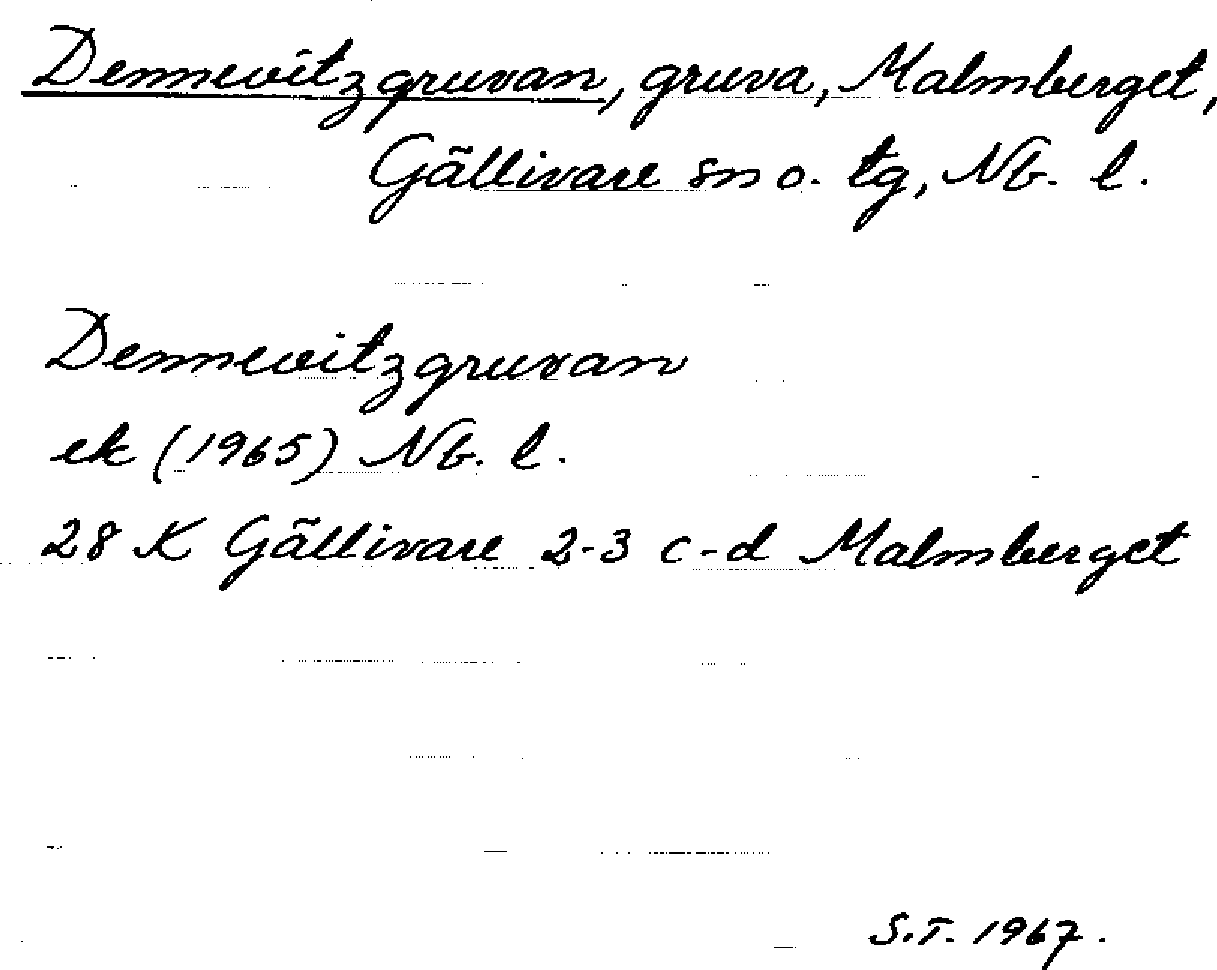 Dennewitzgruvan, gruva, Malmberget,
Gällivare sn o. tg, Nb. l.
Dennewitzgruvan
ek (1965) Nb. l.
28 K Gällivare 2-3 c-d Malmberget
S.T. 1967.